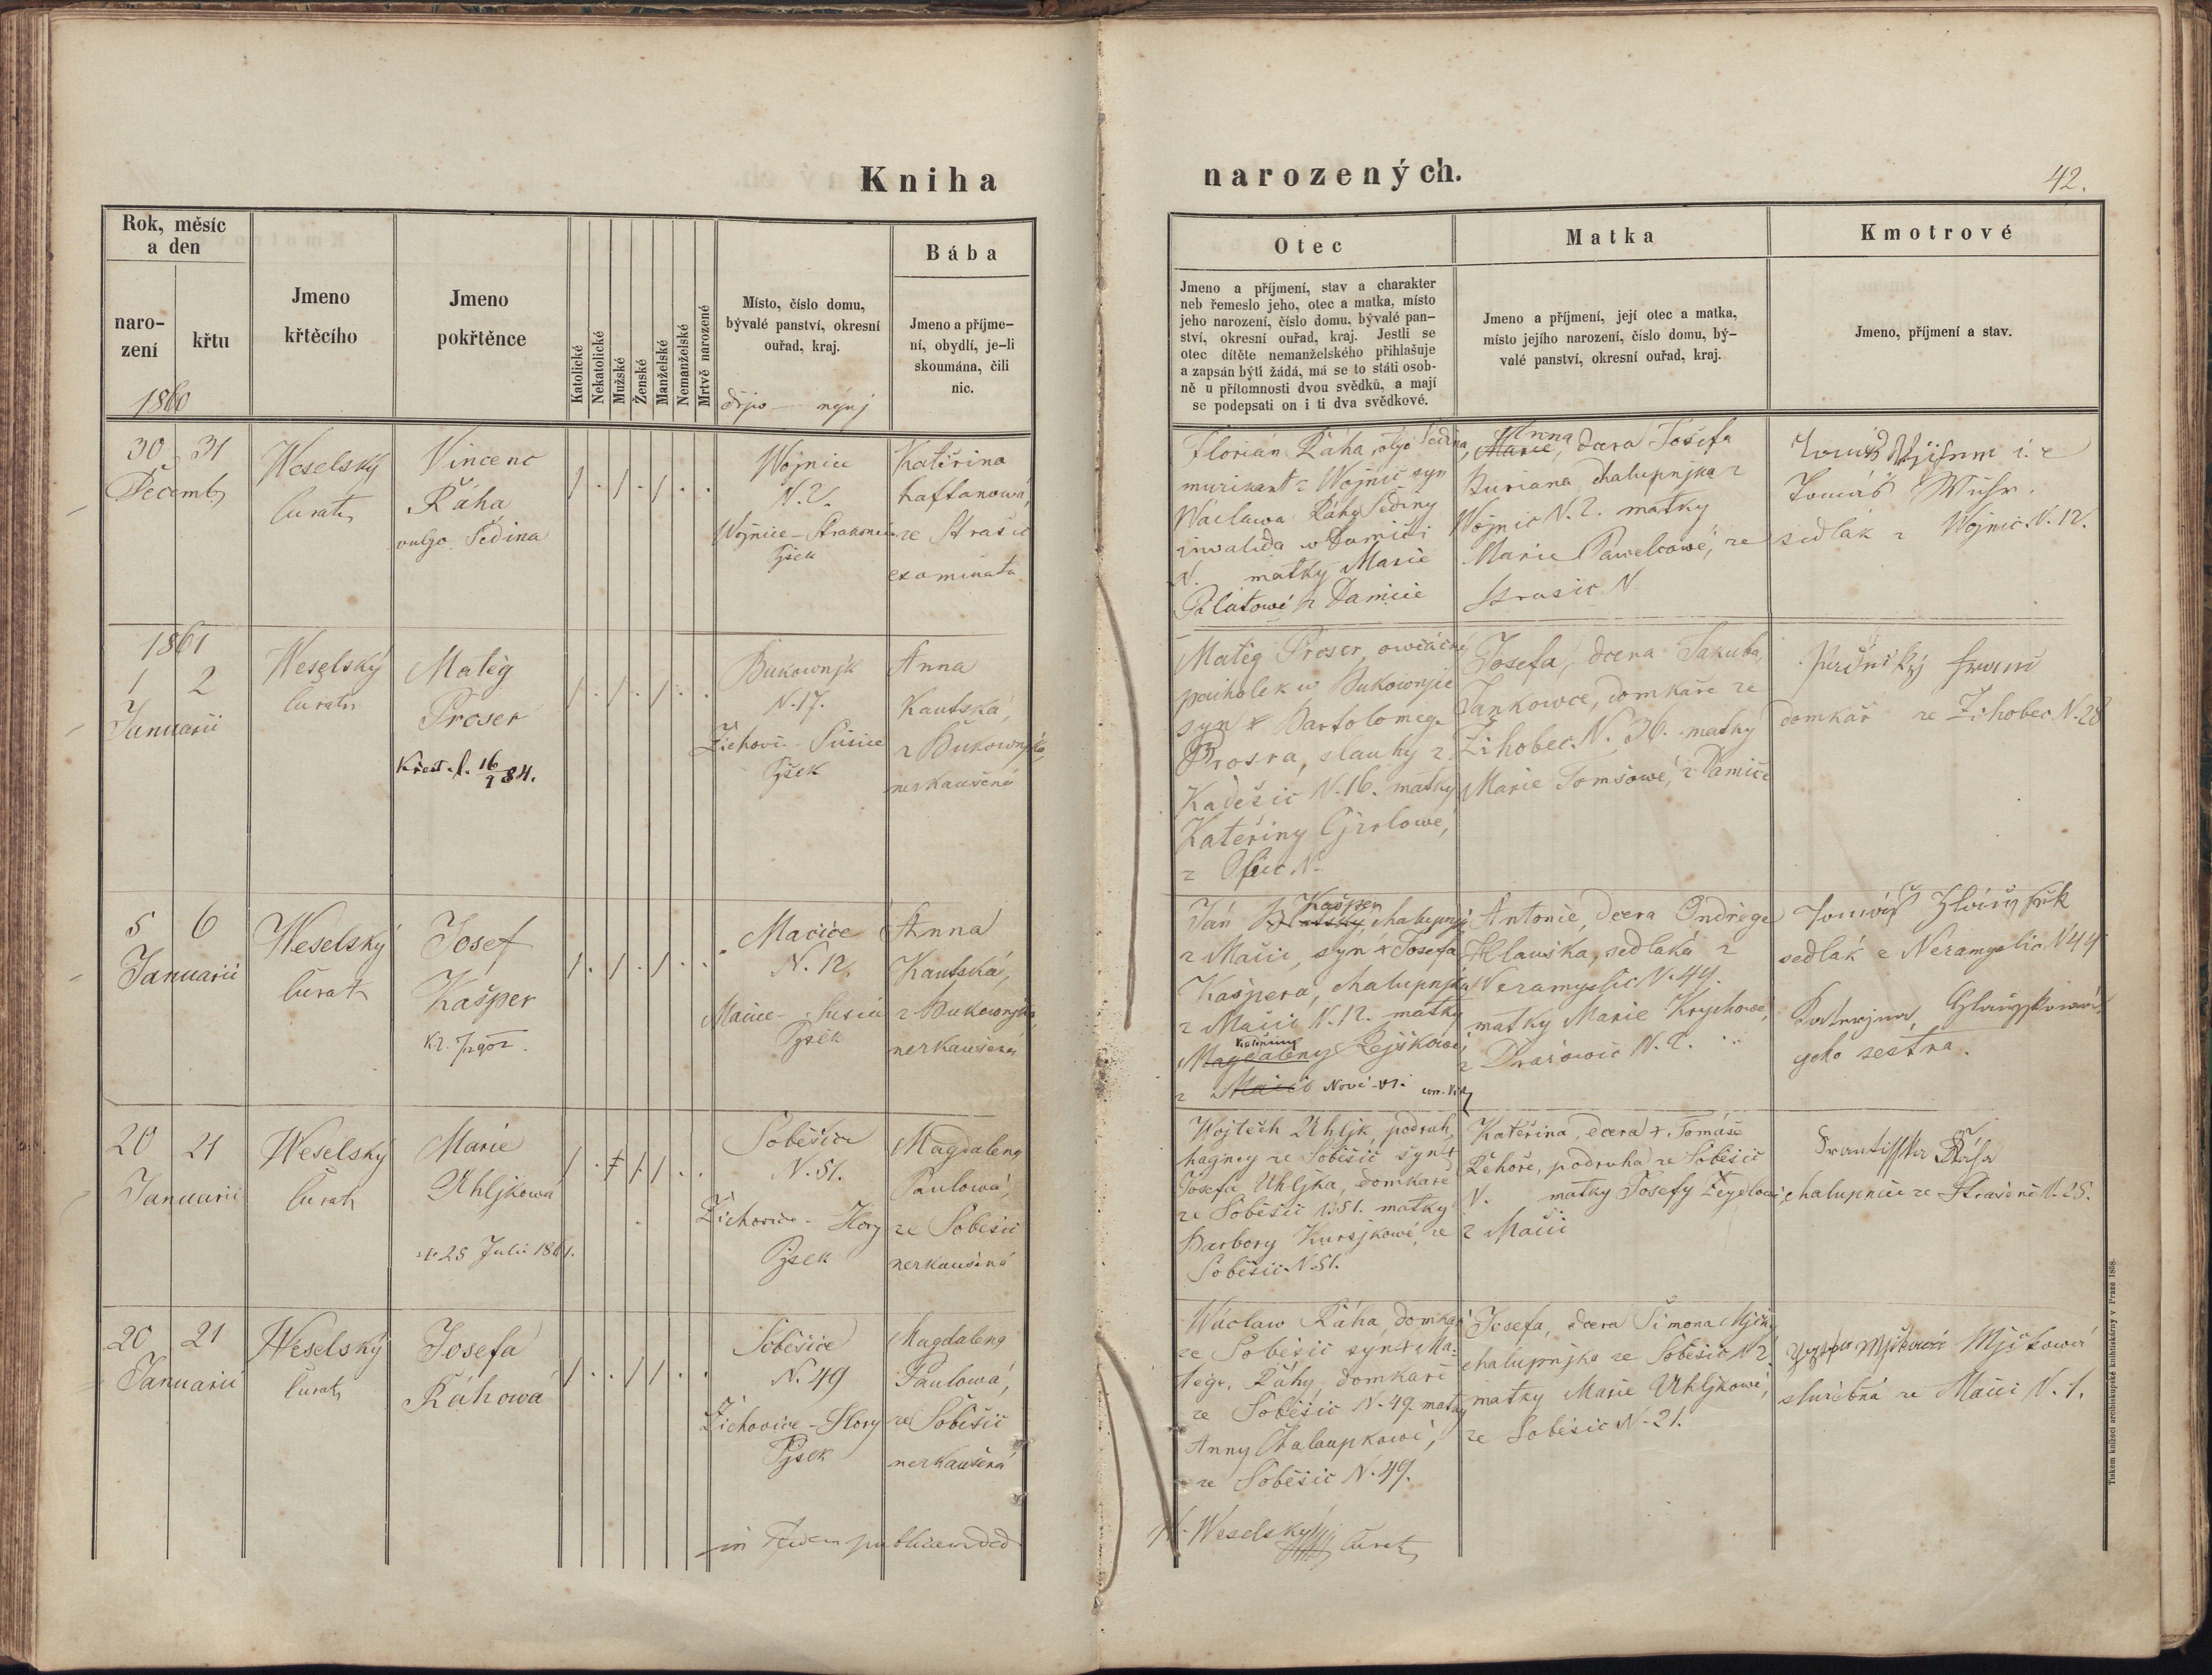 Kniha
narozených.
42.
Rok, měsíc
a den
naro-
zení
křtu
1860
Jmeno
křtěcího
Jmeno
pokřtěnce
Katolické
Nekatolické
Mužské
Ženské
Manželské
Nemanželské
Mrtvě narozené
Místo, číslo domu,
bývalé panství, okresní
ouřad, kraj.
Bába
Jmeno a příjme-
ní, obydlí, je-li
skoumána, čili
nic.
Otec
Jmeno a příjmení, stav a charakter
neb řemeslo jeho, otec a matka, místo
jeho narození, číslo domu, bývalé pan-
ství, okresní ouřad, kraj. Jestli se
otec dítěte nemanželského přihlašuje
a zapsán býti žádá, má se to státi osob-
ně u přítomnosti dvou svědků, a mají
se podepsati on i ti dva svědkové.
Matka
Jmeno a příjmení, její otec a matka,
místo jejího narození, číslo domu, bý-
valé panství, okresní ouřad, kraj.
Kmotrové
Jmeno, příjmení a stav.
30 31
Decemb
Weselský
Curat
Vincenc
Řáha
vulgo Šedina
Wojnice
N. 2.
Wojnice - Strakonice
Pjsek
Kateřina
Kaftanowá,
ze Strašic
examinata
Florián Řáha, vlgo Šedina,
murikant z Wojnic syn
Wáclawa Řáhy Šediny
invalida w Damiči
N. matky Marie
Pilátowé z Damiče
Anna
Marie, dcera Josefa
Buriana chalupnjka z
Wojnic N. 2. matky
Marie Pawelcowé, ze
Strasic N
i. e
Tomáš
sedlák z Wojnic. N. 12.
1861
1 2
Januarii
Weselský
Curat
Matěg
Proser
Křest. l. 16/9 84.
Bukownjk
N. 17.
Žichowic - Sušice
Pjsek
Anna
Kautská,
z Bukownjka,
nezkaušená
Matěg Proser, owčácký
pacholek w Bukownjce
syn + Bartolomege
Prosra, slauhy z
Kadešic N. 16. matky
Kateřiny Cjzlowé,
z N.
Josefa, dcera Jakuba
Jankowce, domkáře ze
Žihobec. N. 36. matky
Marie Tomšowé, z Damiče
domkář ze Žihobec N. 28
5 6
Januarii
Weselský
Curat
Josef
Kašper
Mačice
N. 12.
Mačice - Susice
Pjsek
Anna
Kautská,
z Bukownjka,
nezkaušená
Kašper
Ján chalupnjk
z Mačic, syn + Josefa
Kašpera, chalupnjka
z Mačic N. 12. matky
Kateřiny
Magdaleny Rejškowé,
z Mačic Nové vsi
Antonie, dcera Ondřege
Hlawska, sedláka z
Nezamyslic N. 44.
matky Marie Krychowé,
z Dražowic N. 2.
sedlák z Nezamyslic N 44
geho sestra.
20 21
Januarii
Weselský
Curat
Marie
Uhljkowá
+ 25 Julii 1861.
Soběšice
N. 51.
Žichowice - Hory
Pjsek
Magdalena
Paulowá,
ze Soběšic
nezkaušená
Wojtěch Uhljk, podruh,
hágney ze Soběšic syn +
Josefa Uhljka, domkáře
ze Soběšic N. 51. matky
Barbory Kursjkowé, ze
Soběšic N. 51.
Kateřina, dcera + Tomáše
Řehoře, podruha ze Soběšic
N. matky Josefy
z Mačic
Františka Ráha
chalupnice ze N. 25.
20 21
Januarii
Weselský
Curat
Josefa
Řáhowá
Soběšice
N. 49
Žichowice - Hory
Pjsek
Magdalena
Paulowá,
ze Soběšic
nezkaušená
Wáclaw Řáha, domkář
ze Soběšic syn + Ma-
těge, Řáhy, domkáře
ze Soběšic N. 49. matky
Anny Chalaupkowé,
ze Soběšic N. 49.
Josefa, dcera Šimona Mjčky
chalupnjka ze Soběšic N 2
matky Marie Uhljkowé,
ze Soběšic N. 21.
Mjčkowá
služebná ze Mačic N. 1.
in fidem publicam
Weselský Curat
Tiskem knížecí arcibiskupské knihtiskárny v Praze 1858.